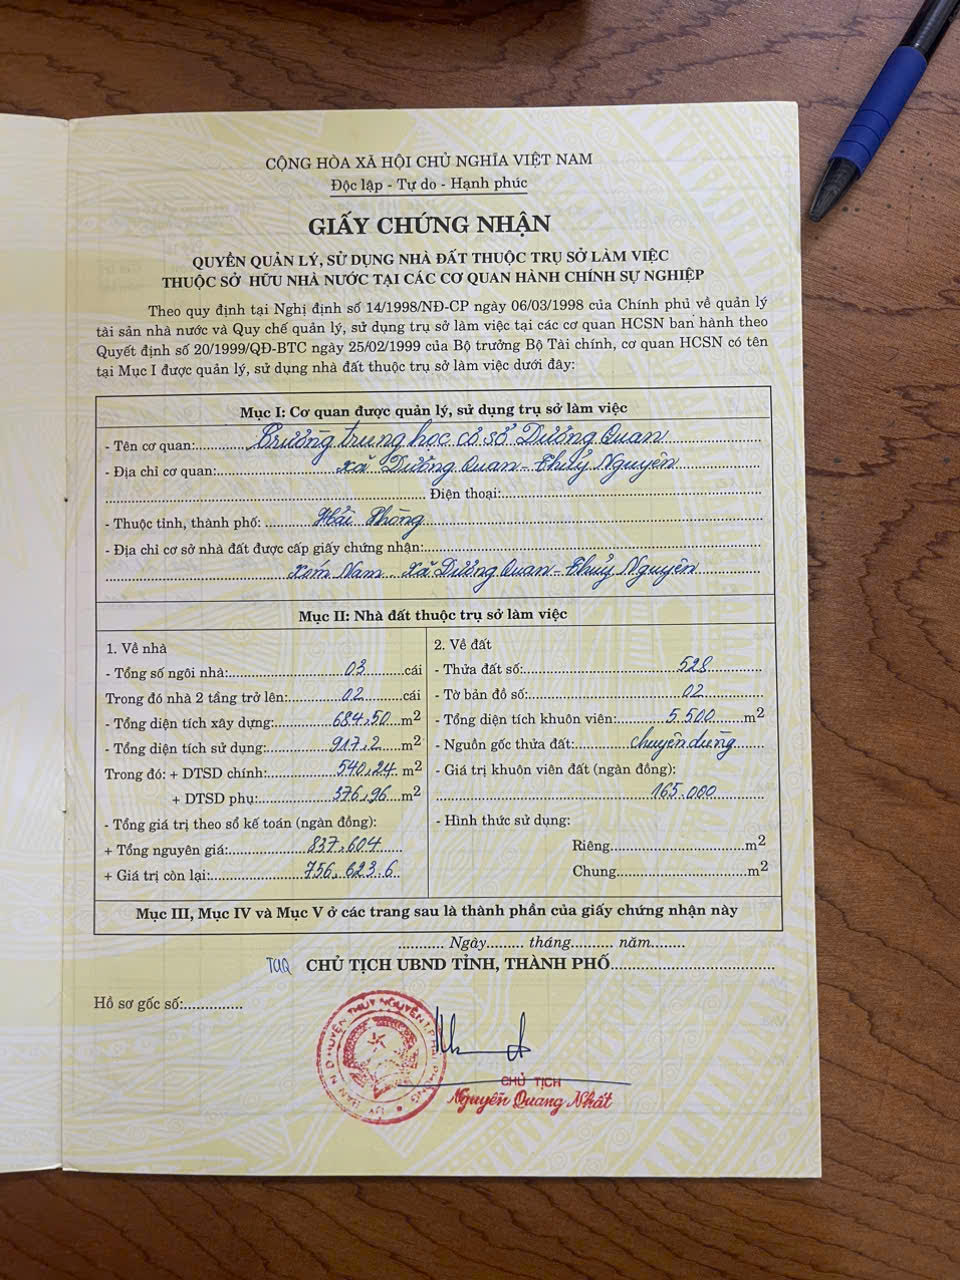 CỘNG HÒA XÃ HỘI CHỦ NGHĨA VIỆT NAM
Độc lập - Tự do - Hạnh phúc
GIẤY CHỨNG NHẬN
QUYỀN QUẢN LÝ, SỬ DỤNG NHÀ ĐẤT THUỘC TRỤ SỞ LÀM VIỆC
THUỘC SỞ HỮU NHÀ NƯỚC TẠI CÁC CƠ QUAN HÀNH CHÍNH SỰ NGHIỆP
Theo quy định tại Nghị định số 14/1998/NĐ-CP ngày 06/03/1998 của Chính phủ về quản lý
tài sản nhà nước và Quy chế quản lý, sử dụng trụ sở làm việc tại các cơ quan HCSN ban hành theo
Quyết định số 20/1999/QĐ-BTC ngày 25/02/1999 của Bộ trưởng Bộ Tài chính, cơ quan HCSN có tên
tại Mục I được quản lý, sử dụng nhà đất thuộc trụ sở làm việc dưới đây:
Mục I: Cơ quan được quản lý, sử dụng trụ sở làm việc
- Tên cơ quan: Trường trung học cơ sở Dương Quan
- Địa chỉ cơ quan: xã Dương Quan - Thuỷ Nguyên
Điện thoại:
- Thuộc tỉnh, thành phố: Hải Phòng
- Địa chỉ cơ sở nhà đất được cấp giấy chứng nhận:
Xóm Nam xã Dương Quan - Thuỷ Nguyên
Mục II: Nhà đất thuộc trụ sở làm việc
1. Về nhà
- Tổng số ngôi nhà: 03 cái
Trong đó nhà 2 tầng trở lên: 02 cái
- Tổng diện tích xây dựng: 684,50 m2
- Tổng diện tích sử dụng: 917,2 m2
Trong đó: + DTSD chính: 540,24 m2
+ DTSD phụ: 376,96 m2
- Tổng giá trị theo sổ kế toán (ngàn đồng):
+ Tổng nguyên giá: 837.604
+ Giá trị còn lại: 756.623.6
2. Về đất
- Thửa đất số: 528
- Tờ bản đồ số: 02
- Tổng diện tích khuôn viên: 5.500 m2
- Nguồn gốc thửa đất: chuyên dùng
- Giá trị khuôn viên đất (ngàn đồng):
165.000
- Hình thức sử dụng:
Riêng m2
Chung m2
Mục III, Mục IV và Mục V ở các trang sau là thành phần của giấy chứng nhận này
Ngày tháng năm
TUQ CHỦ TỊCH UBND TỈNH, THÀNH PHỐ
Hồ sơ gốc số:
CHỦ TỊCH
Nguyễn Quang Nhất